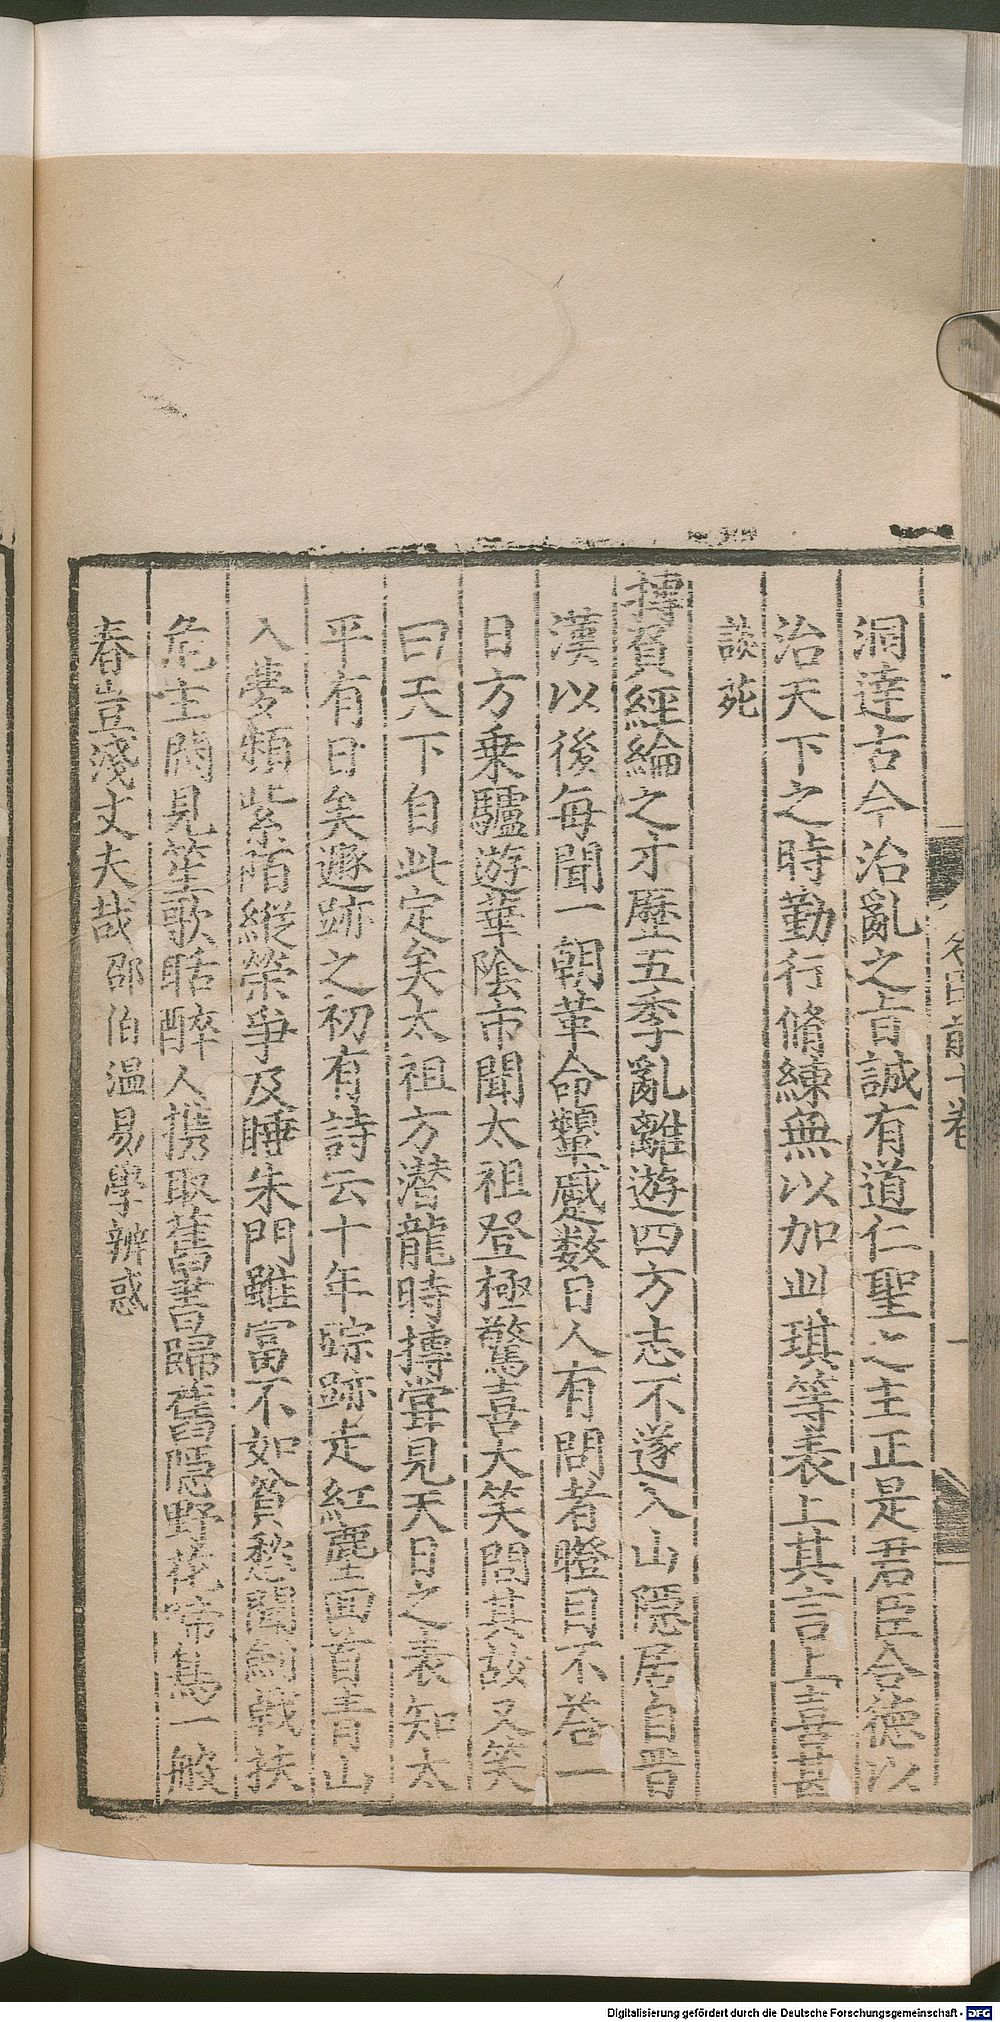 洞達古今治亂之旨誠有道仁聖之主正是君臣合德以
治天下之時勤行脩練無以加此琪等表上其言上喜甚
談苑
摶負經綸之才歷五季亂離遊四方志不遂入山隱居自晋
漢以後每聞一朝革命顰蹙數日人有問者瞪目不荅一
日方乗驢遊華陰市聞太祖登極驚喜大笑問其故又笑
曰天下自此定矣太祖方潜龍時摶甞見天日之表知太
平有日矣遯跡之初有詩云十年踪跡走紅塵回首青山
入夢頻紫陌縱榮爭及睡朱門雖富不如貧愁聞劍戟扶
危主悶見笙歌聒醉人携取舊書歸舊隱野花啼鳥一般
春豈淺丈夫哉邵伯温易學辨惑
Digitalisierung gefördert durch die Deutsche Forschungsgemeinschaft - DFG